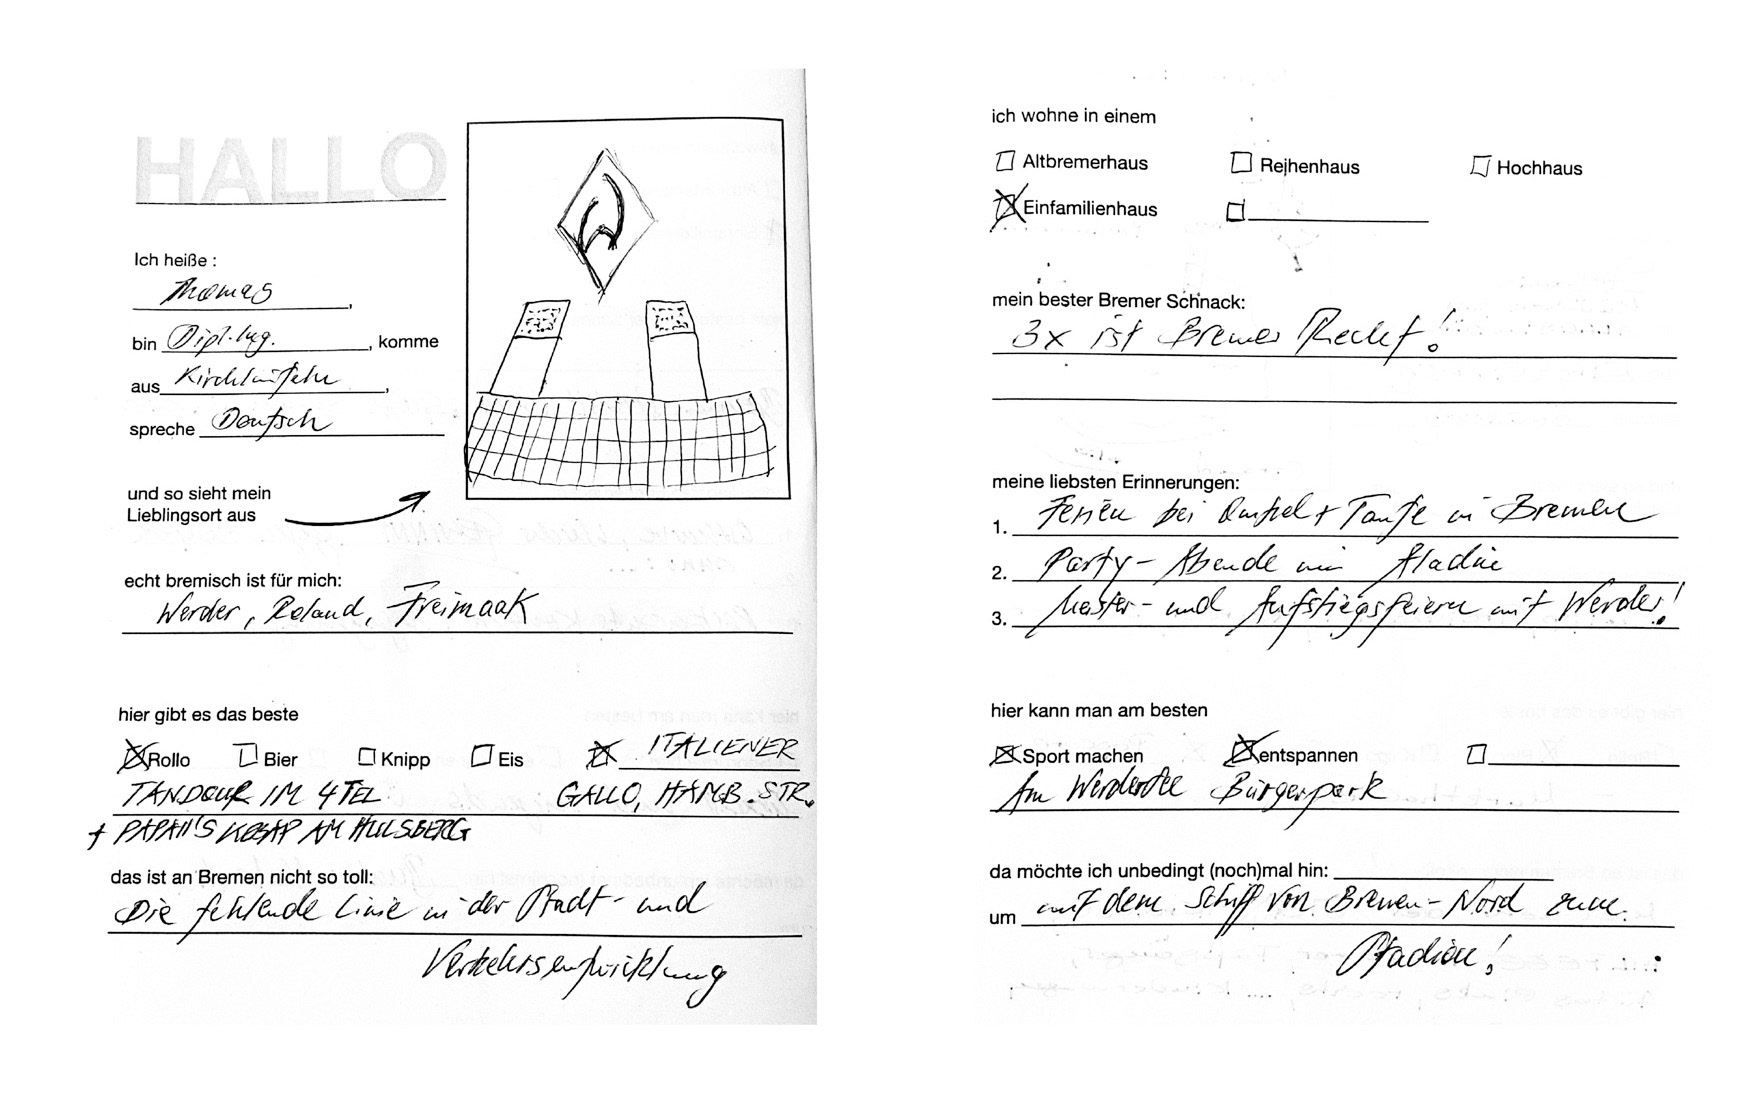 HALLO
Ich heiße :
Thomas,
bin Dipl.-Ing., komme
aus Kirchlinteln,
spreche Deutsch
und so sieht mein
Lieblingsort aus
echt bremisch ist für mich:
Werder, Roland, Freimaak
hier gibt es das beste
Rollo Bier Knipp Eis ITALIENER
TANDOUR IM 4TEL GALLO, HAMB. STR.
+ PAPAII'S KEBAP AM HULSBERG
das ist an Bremen nicht so toll:
Die fehlende Linie in der Stadt- und
Verkehrsentwicklung
ich wohne in einem
Altbremerhaus Reihenhaus Hochhaus
Einfamilienhaus
mein bester Bremer Schnack:
3x ist Bremer Recht!
meine liebsten Erinnerungen:
1. Ferien bei Onkel + Tante in Bremen
2. Party-Abende im Aladin
3. Meister- und Aufstiegsfeiern mit Werder!
hier kann man am besten
Sport machen entspannen
Am Werdersee Bürgerpark
da möchte ich unbedingt (noch)mal hin:
um mit dem Schiff von Bremen-Nord zum
Stadion!